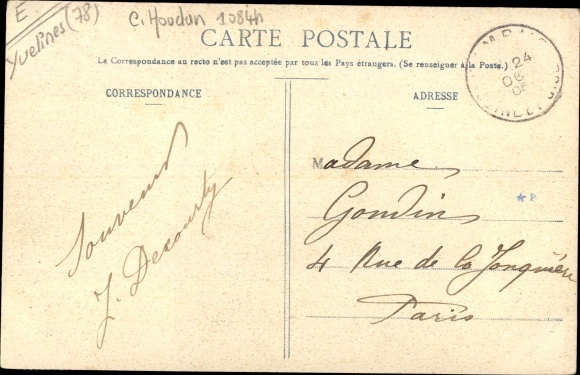 E
Yvelines (78)
C. Houdan 1084h
CARTE POSTALE
La Correspondance au recto n'est pas acceptée par tous les Pays étrangers. (Se renseigner à la Poste.)
CORRESPONDANCE
ADRESSE
24
05
Souvenir
J. Decourty
Madame
Gondin
P
4 Rue de la Jonquière
Paris